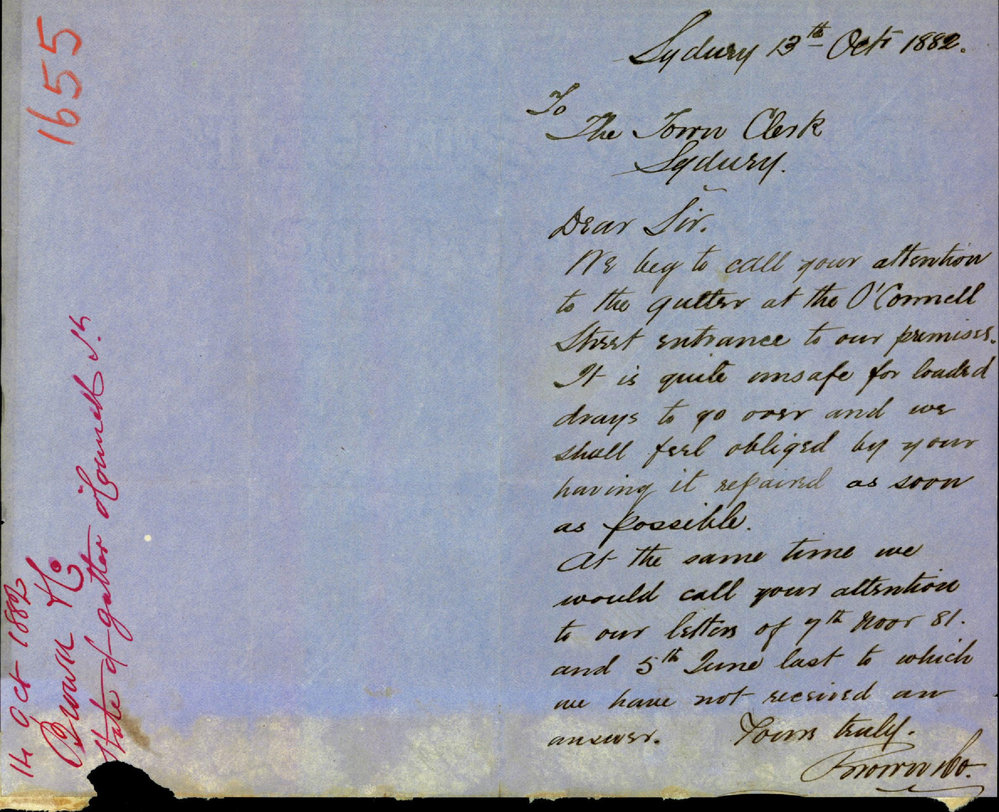 1655
14 Oct 1882
Brown & Co
State of gutter O'Connell St
Sydney 13th Octr 1882.
To
The Town Clerk
Sydney.
Dear Sir.
We beg to call your attention
to the gutter at the O'Connell
Street entrance to our premises.
It is quite unsafe for loaded
drays to go over and we
shall feel obliged by your
having it repaired as soon
as possible.
At the same time we
would call your attention
to our letters of 7th Novr 81.
and 5th June last to which
we have not received an
answer. Yours truly.
Brown & Co.